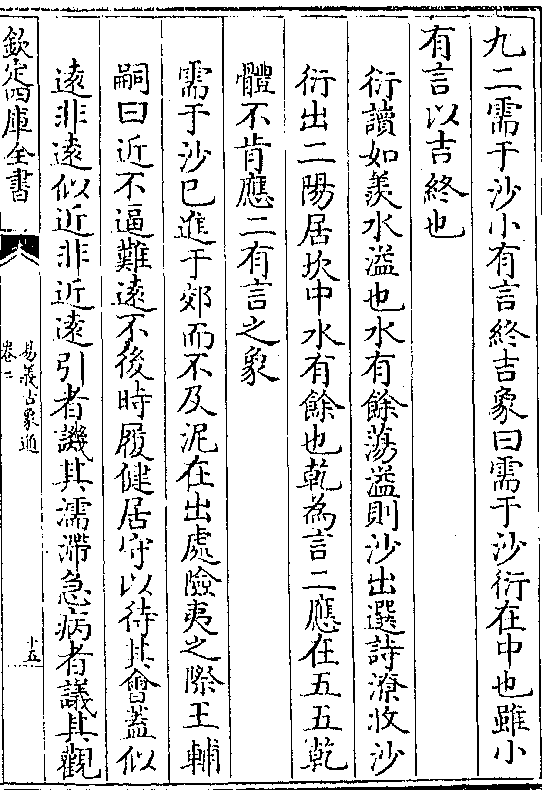 九二需于沙小有言終吉象曰需于沙衍在中也雖小
有言以吉終也
衍讀如羨水溢也水有餘蕩溢則沙出選詩潦收沙
衍出二陽居坎中水有餘也乾為言二應在五五乾
體不肯應二有言之象
需于沙已進于郊而不及泥在出處險夷之際王輔
嗣曰近不逼難遠不後時履健居守以待其會蓋似
遠非遠似近非近遠引者譏其濡滯急病者議其觀
欽定四庫全書
易義古象通
卷二
十五